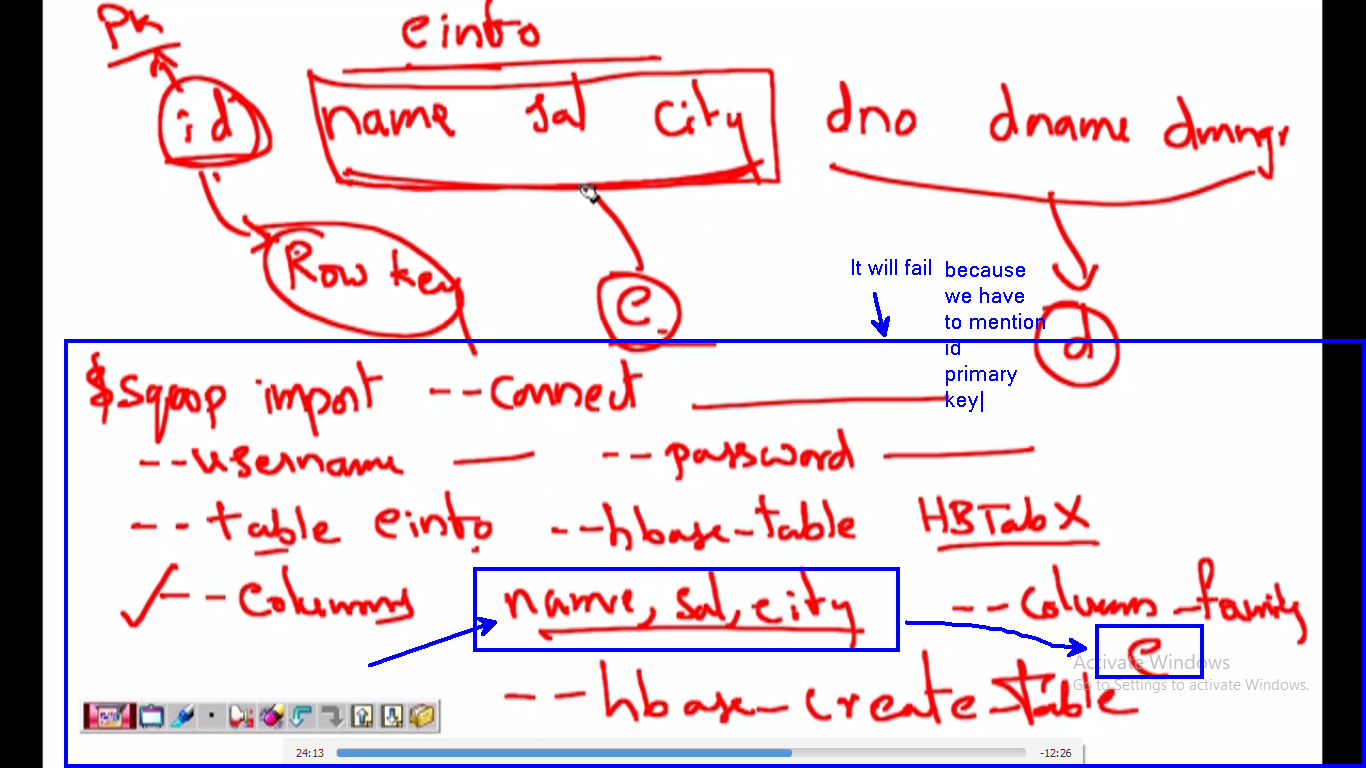 PK
einfo
id name sal city dno dname dmngr
Row key
e
d
It will fail
because
we have
to mention
id
primary
key
$sqoop import --connect
--username --password
--table einfo --hbase-table HBTabX
--Columns name, sal, city --column-family
e
--hbase-create-table
Activate Windows
Go to Settings to activate Windows.
24:13 -12:26